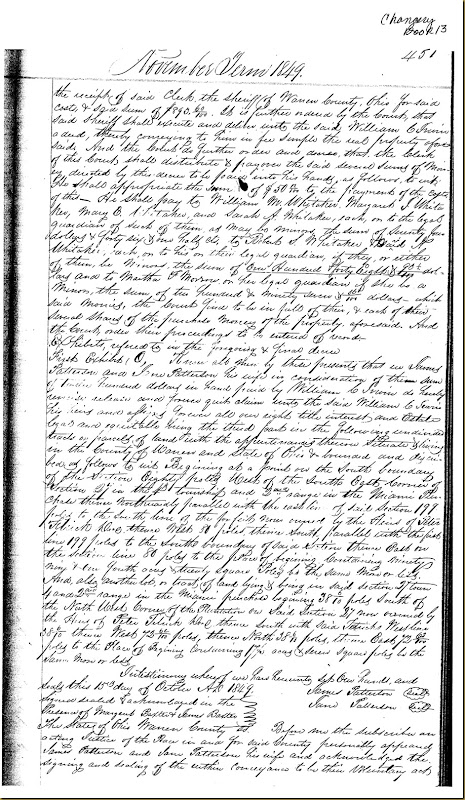 Chancery
Book 13
November Term 1849.
451
the receipt of said Clerk the sheriff of Warren County, Ohio for said
costs & said sum of $890. It is further ordered by the Court, that
said Sheriff shall execute and deliver unto the said William C Irwin
a deed, thereby conveying to him in fee simple the real property afore
said. And the Court do further order and decree, that the Clerk
of this Court, shall distribute & pay over the said several sums of Mon
ey, directed by this decree to be paid into his hands, as follows to wit,
He shall appropriate the sum of $50 to the payment of the Costs
of this He shall pay to William M. Whitaker, Margaret J White
ker, Mary E. Whitaker, and Sarah A. Whitaker, each, or to the legal
guardian of such of them as may be minors, the sum of Seventy four
dollars & forty six & one half cts, to S. Whitaker & David
Whitaker, each, or to his or their legal guardian, if they, or either
of them, be Minors, the sum of One Hundred forty Eight dol
lars and to Martha F or her legal guardian if she be a
Minor, the sum of two hundred & ninety seven dollars which
said monies, the Court find to be in full of their, & each of their
several shares of the purchase money of the property aforesaid. And
the Court order these proceedings to be entered of record
Exhibits, refered to in the foregoing & final decree
First Exhibit, O, Know all Men by these presents that we James
Patterson and Jane Patterson his wife in consideration of the sum
of hundred dollars in hand paid by William C Irwin do hereby
remise release and forever quit claim unto the said William C Irwin
his heirs and assigns forever all our right title interest and Estate
legal and equitable being the third part in the following undivided
tracts or parcels of land with the appurtenances thereon Situate & being
in the County of Warren and State of Ohio & bounded and discri
bed as follows to wit Begining at a point on the South boundary
of the Section Eighty poles West of the South East Corner of
Section in the township and 2nd range in the Miami Pur
chase thence Northwardly parallel with the east line of said Section 198
poles to the South line of the now owned by the Heirs of Peter
thence West 80 poles thence South, parallel with the first
line 198 poles to the South boundary of said Section thence East on
the section line 80 poles to the place of begining Containing Ninety
nine & one fourth acres & twenty Square Poles be the Same More or less
And, also, another lot, or tract, of land lying & being in said section & town
4 and 2nd range in the Miami purchase begining 38 poles South of
the North West Corner of the Plantation on Said Section 27 now owned by
the Heirs of Peter thence South with said
38 thence West 73 poles, thence North 38 poles, thence East 73
poles to the Place of begining Containing 17 acres & seven square poles be the
Same More or less
In testimony whereof we have hereunto set our hands, and
seals this 15th day of October A.D. 1849
Signed sealed & acknowledged in the James Patterson (seal)
Presence of Baxter & James Baxter Jane Patterson (seal)
The State of Ohio Warren County ss Before me the subscriber an
acting Justice of the Peace in and for said County personally appeared
James Patterson and Jane Patterson his wife and acknowledged the
signing and sealing of the within conveyance to be their Voluntary act